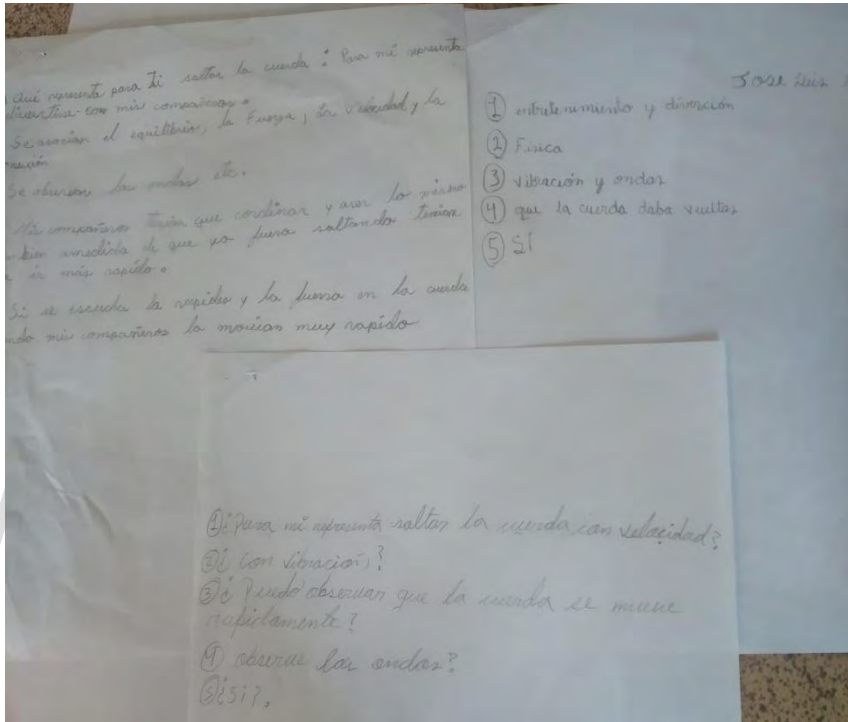 Qué representa para ti saltar la cuerda: Para mí representa
divertirse con mis compañeros.
Se asocian el equilibrio, la Fuerza, la velocidad y la
Se observan las ondas etc.
Mis compañeros tenían que cordinar y aser lo mismo
bien amedida de que yo fuera saltando tenian
ir más rapido.
Si se escucha la rapides y la fuersa en la cuerda
mis compañeros la movian muy rapido
Jose Luis
① entretenimiento y diverción
② Fisica
③ vibración y ondas
④ que la cuerda daba vueltas
⑤ SÍ
①¿Para mí representa saltar la cuerda con velocidad?
②¿ con vibración?
③¿ Puedo observar que la cuerda se mueve
rapidamente?
④ observe las ondas?
⑤¿Si?.